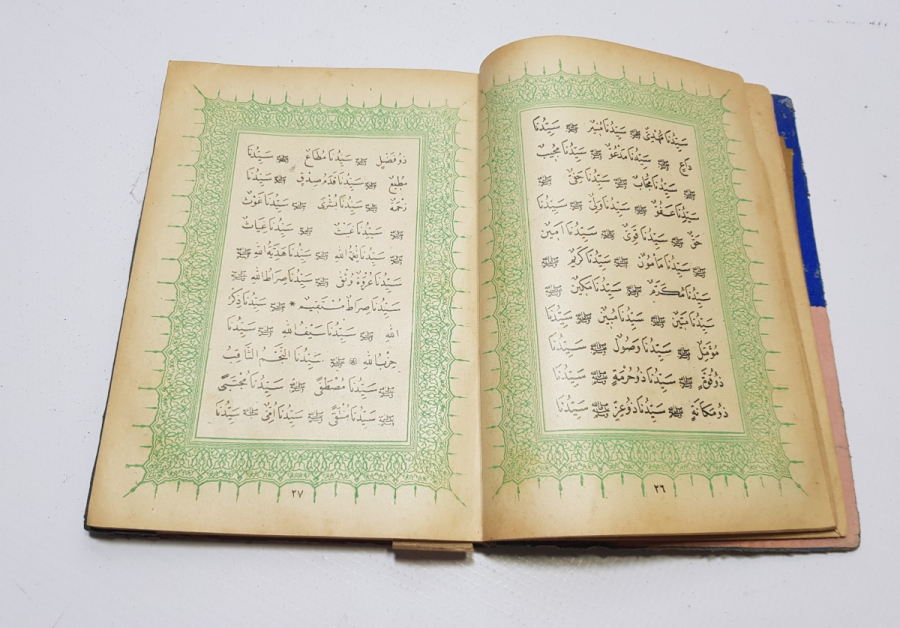 سَيِّدُنَا مَهْدِيٌّ ﷺ سَيِّدُنَا مُنِيرٌ ﷺ سَيِّدُنَا
دَاعٍ ﷺ سَيِّدُنَا مَدْعُوٌّ ﷺ سَيِّدُنَا مُجِيبٌ
ﷺ سَيِّدُنَا مُجَابٌ ﷺ سَيِّدُنَا حَفِيٌّ ﷺ
سَيِّدُنَا عَفُوٌّ ﷺ سَيِّدُنَا وَلِيٌّ ﷺ سَيِّدُنَا
حَقٌّ ﷺ سَيِّدُنَا قَوِيٌّ ﷺ سَيِّدُنَا اَمِينٌ
ﷺ سَيِّدُنَا مَأْمُونٌ ﷺ سَيِّدُنَا كَرِيمٌ ﷺ
سَيِّدُنَا مُكَرَّمٌ ﷺ سَيِّدُنَا مَكِينٌ ﷺ
سَيِّدُنَا مَتِينٌ ﷺ سَيِّدُنَا مُبِينٌ ﷺ سَيِّدُنَا
مُؤَمَّلٌ ﷺ سَيِّدُنَا وَصُولٌ ﷺ سَيِّدُنَا
ذُوقُوَّةٍ ﷺ سَيِّدُنَا ذُوحُرْمَةٍ ﷺ سَيِّدُنَا
ذُومَكَانَةٍ ﷺ سَيِّدُنَا ذُوعِزٍّ ﷺ سَيِّدُنَا
٢٦
ذُوفَضْلٍ ﷺ سَيِّدُنَا مُطَاعٌ ﷺ سَيِّدُنَا
مُطِيعٌ ﷺ سَيِّدُنَا قَدَمُ صِدْقٍ ﷺ سَيِّدُنَا
رَحْمَةٌ ﷺ سَيِّدُنَا بُشْرٰى ﷺ سَيِّدُنَا غَوْثٌ
ﷺ سَيِّدُنَا غَيْثٌ ﷺ سَيِّدُنَا غِيَاثٌ
ﷺ سَيِّدُنَا نِعْمَةُ اللهِ ﷺ سَيِّدُنَا هَدِيَّةُ اللهِ ﷺ
سَيِّدُنَا عُرْوَةٌ وُثْقٰى ﷺ سَيِّدُنَا صِرَاطُ اللهِ ﷺ
سَيِّدُنَا صِرَاطٌ مُسْتَقِيمٌ * ﷺ سَيِّدُنَا ذِكْرُ
اللهِ ﷺ سَيِّدُنَا سَيْفُ اللهِ ﷺ سَيِّدُنَا
حِزْبُ اللهِ ﷺ سَيِّدُنَا النَّجْمُ الثَّاقِبُ
ﷺ سَيِّدُنَا مُصْطَفٰى ﷺ سَيِّدُنَا مُجْتَبٰى
ﷺ سَيِّدُنَا مُنْتَقٰى ﷺ سَيِّدُنَا اُمِّيٌّ ﷺ سَيِّدُنَا
٢٧